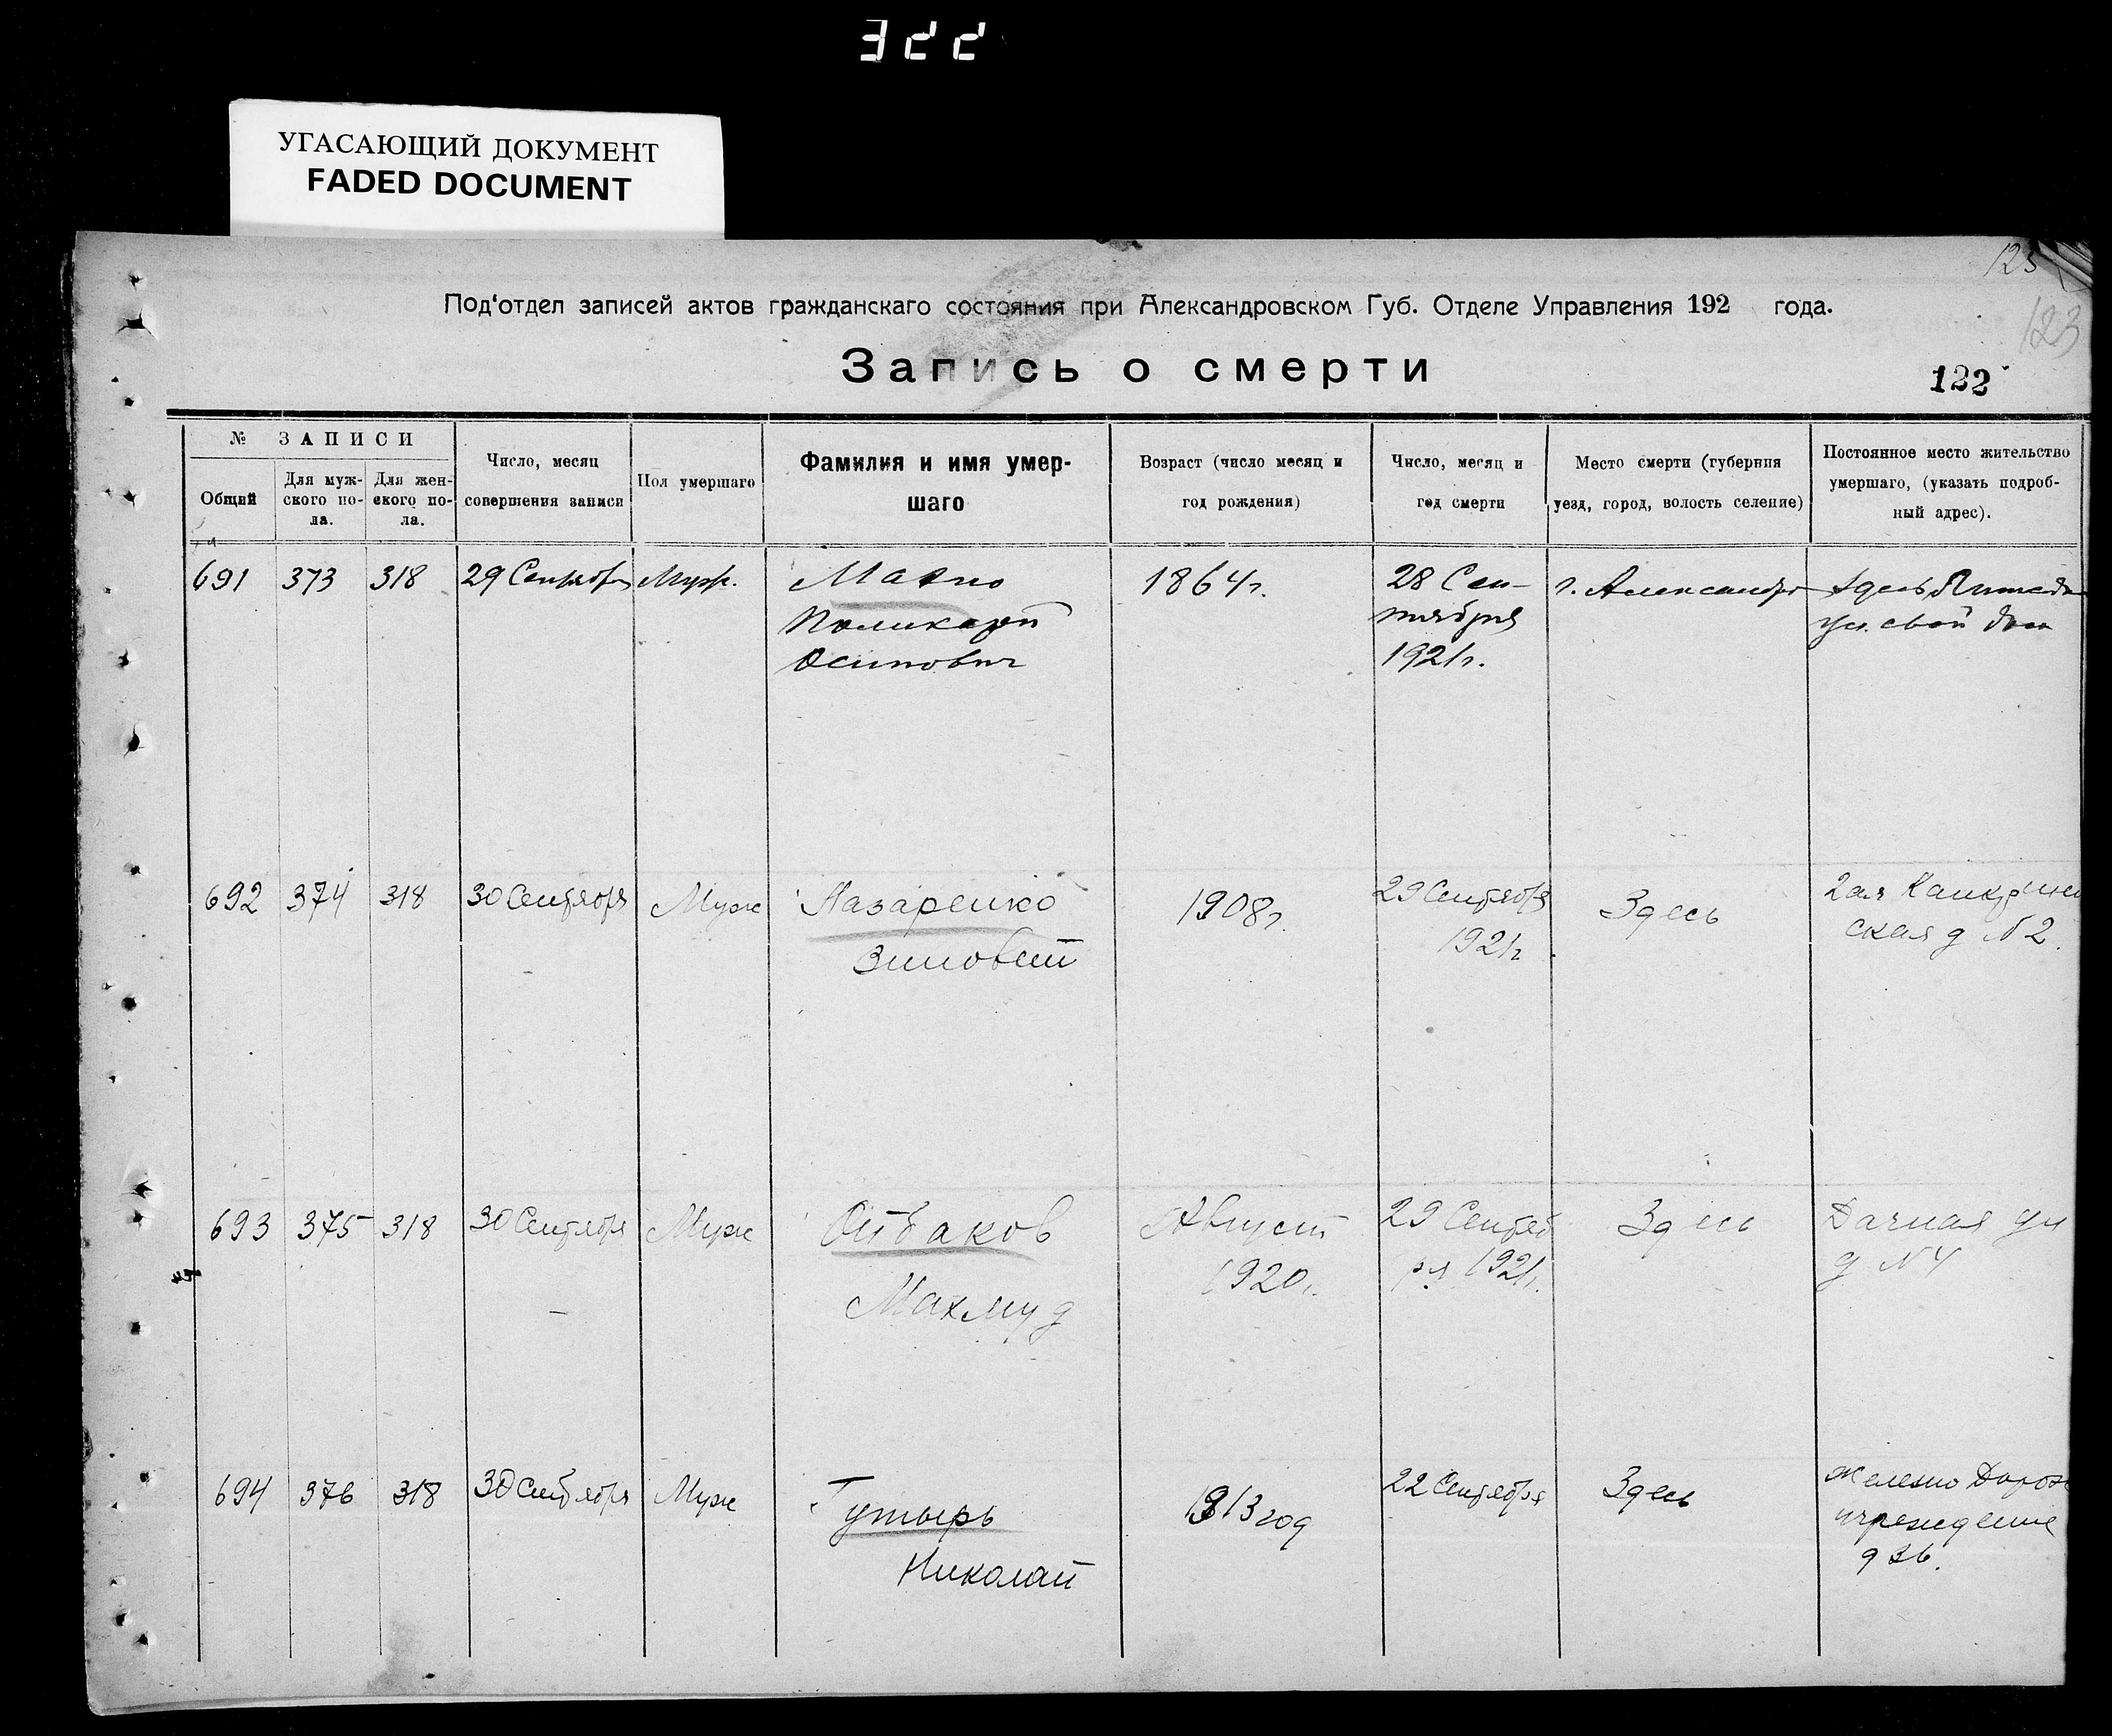 322
УГАСАЮЩИЙ ДОКУМЕНТ
FADED DOCUMENT
123
123
Под'отдел записей актов гражданскаго состояния при Александровском Губ. Отделе Управления 192 года.
Запись о смерти
122
№ ЗАПИСИ
Общий
Для муж-
ского по-
ла.
Для жен-
ского по-
ла.
Число, месяц
совершения записи
Пол умершаго
Фамилия и имя умер-
шаго
Возраст (число месяц и
год рождения)
Число, месяц и
год смерти
Место смерти (губерния
уезд, город, волость селение)
Постоянное место жительство
умершаго, (указать подроб-
ный адрес).
691 373 318 29 Сентября Муж.
Поликарп
Осипович
1864 г.
28 Сен-
тября
1921 г.
г. Александро
здесь
ул. свой дом
692 374 318 30 Сентября Муж
Назаренко
Зиновий
1908 г.
29 Сентября
1921 г
Здесь
2ая
ская д № 2.
693 375 318 30 Сентября Муж
Махмуд
Август
1920 г.
29 Сентяб
ря 1921 г.
Здесь
Дачная ул
д № 4
694 376 318 30 Сентября Муж
Гутырь
Николай
1913 год
22 Сентября
Здесь
Железно Дорож
учреждение
д 36.